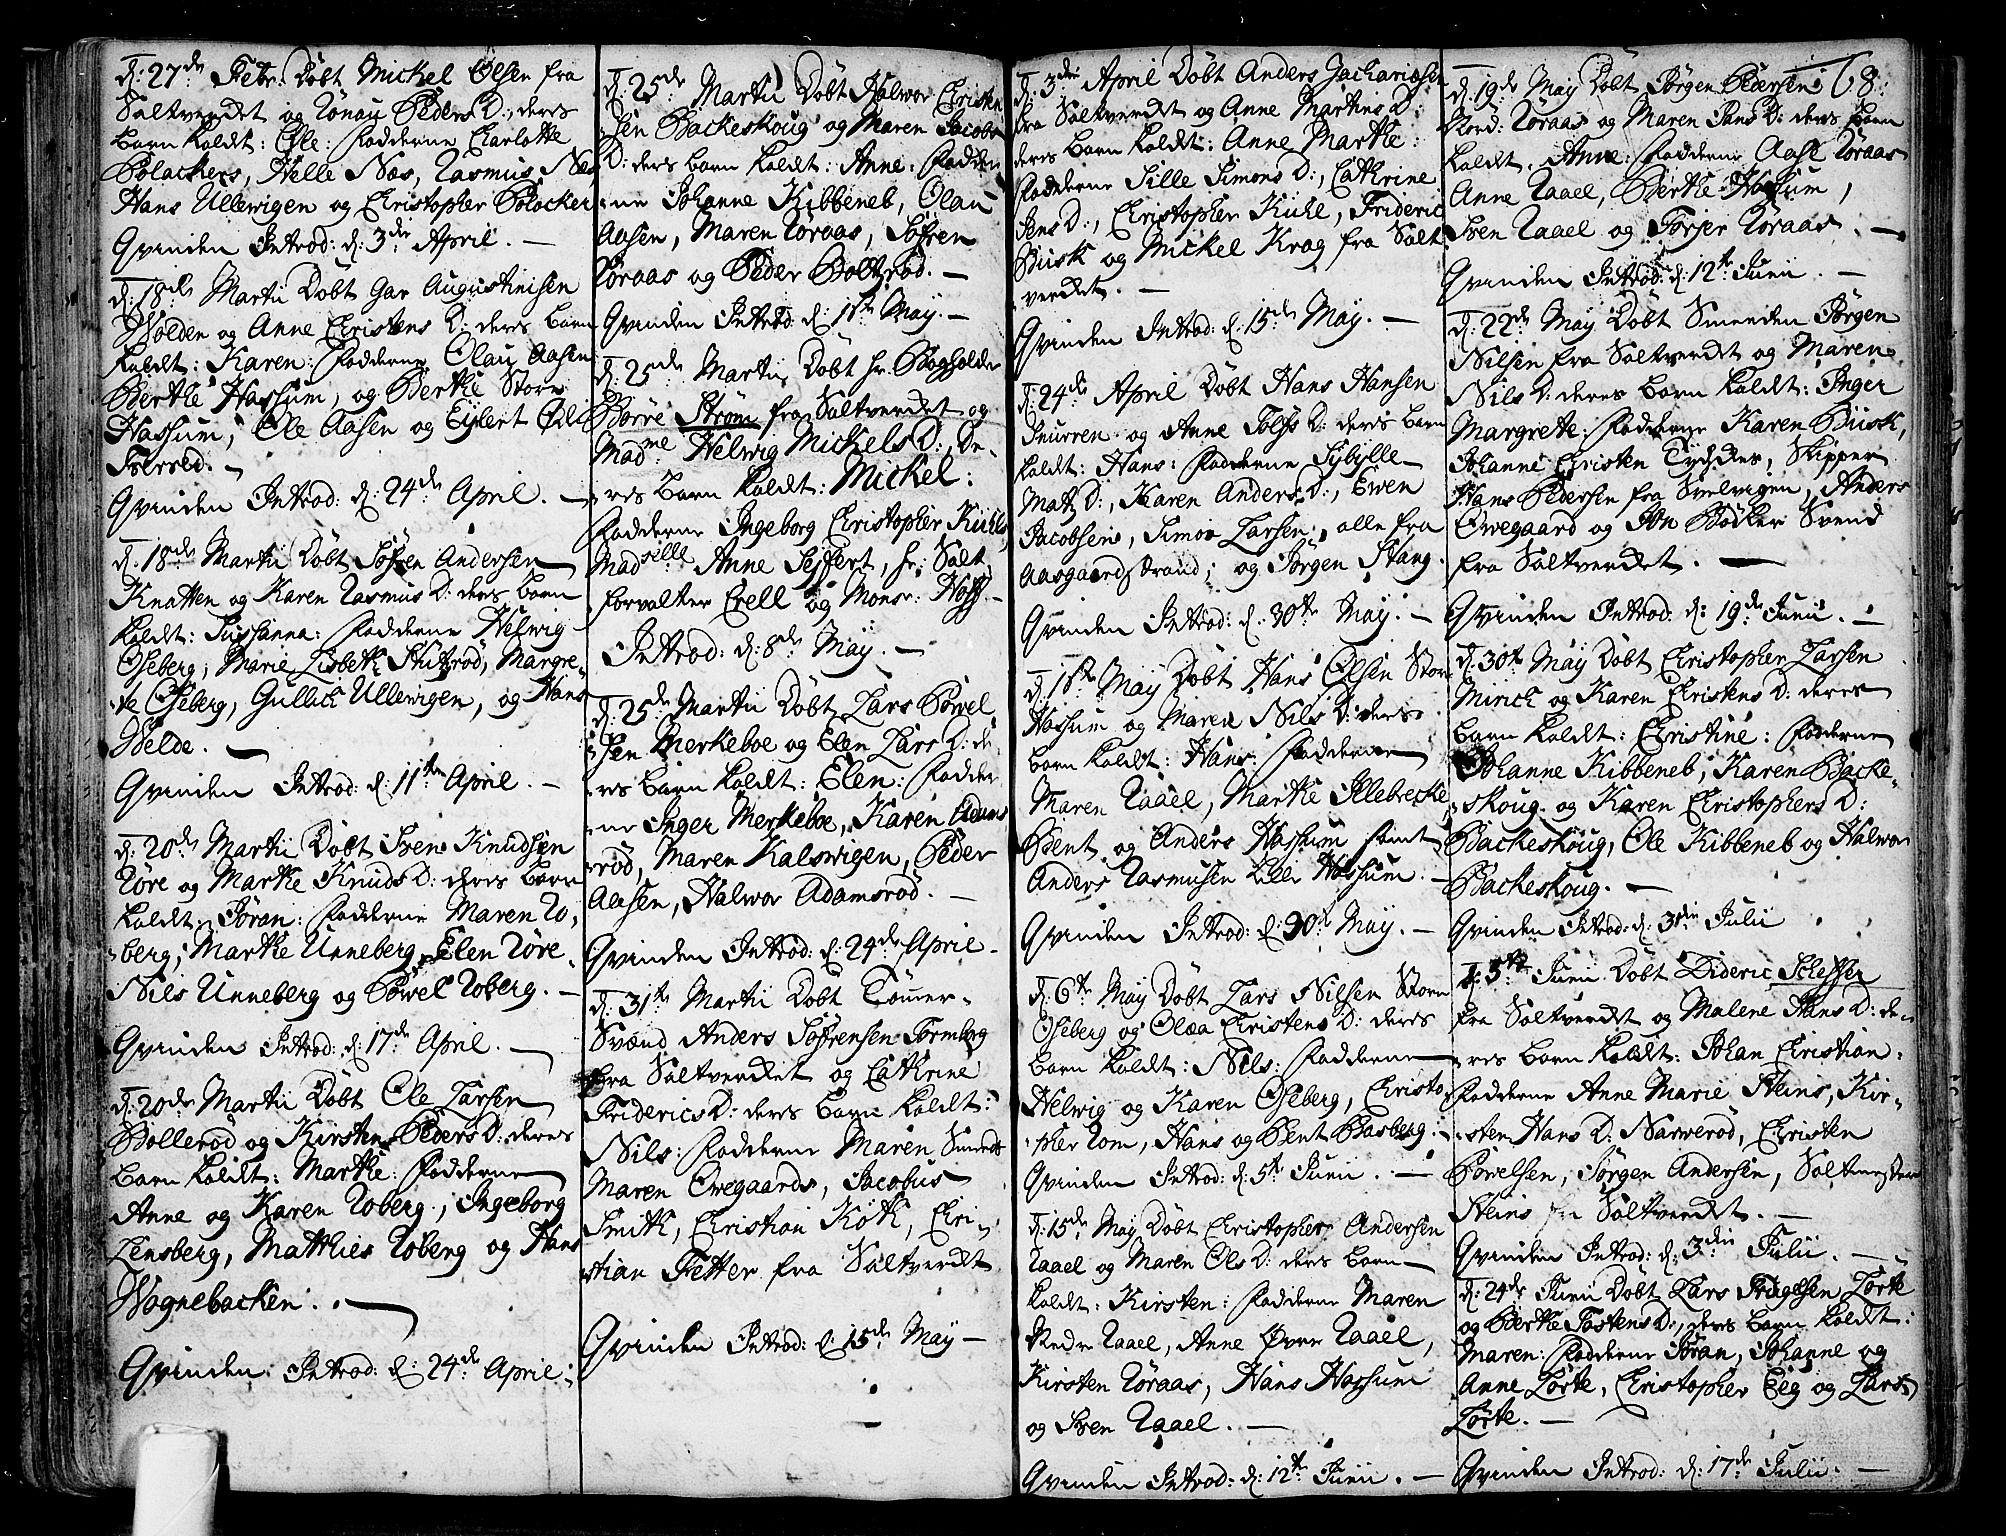 d: 27de Febr. Döbt Mickel Olsen fra
Saltverdet og Rönau Peders D: deres
Barn kaldt: Ole: Fadderne Charlotte
Blackers, Helle Næs, Rasmus Næs
Hans Ullewigen og Christopher Blocker
Qvinden Introd: d: 3die April. —
d: 18de Martii Döbt Gar Augustinisen
Wolden og Anne Christens D: deres Barn
kaldt: Karen: Fadderne Olau Aasen
Berthe Hassum, og Berthe Store
Hassum, Ole Aasen og Eylert
Qvinden Introd: d: 24de April. —
d: 18de Martii Döbt Söfren Andersen
Knatten og Karen Rasmus D: deres Barn
kaldt: Sussanna: Fadderne Helwig
Oseberg, Marie Lisbeth Skitröd, Margre-
te Oseberg, Gullich Ullewigen, og Hans
Welde. —
Qvinden Introd: d: 11te April. —
d: 20de Martii Döbt Iven Knudsen
Röre og Marthe Knuds D: deres Barn
kaldt: Söran: Fadderne Maren Ro-
berg, Marthe Unneberg, Elen Röre,
Nils Unneberg og Powel Roberg. —
Qvinden Introd: d: 17de April. —
d: 20de Martii Döbt Ole Larsen
Bolleröd og Kirsten Peders D: deres
Barn kaldt: Marthe: Fadderne
Anne og Karen Roberg, Ingeborg
Lensberg, Matthies Roberg og Hans
Wognebacken. —
Qvinden Introd: d: 24de April.
d: 25de Martii Döbt Halwor Christen
sen Backeskoug og Maren Jacobs
D: deres Barn kaldt: Anne: Fadder
ne Johanne Kibbeneb, Olau
Aasen, Maren Röraas, Söfren
Röraas og Peder Boltröd. —
Qvinden Introd: d: 1ste May. —
d: 25de Martii Döbt hr Bogholder
Börre Ström fra Saltverdet og
Madme Helwig Mickels D: de-
res Barn kaldt: Mickel:
Fadderne Ingeborg Christopher Kühls
Madselle Anne Seyffert, hr: Salt
forvalter Crell og Monsr: Hoff. —
Introd: d: 8de May. —
d: 25de Martii Döbt Lars Powel
sen Merkeboe og Elen Lars D: de
res Barn kaldt: Elen: Fadder
ne Inger Merkeboe, Karen Adams
röd, Maren Kalswigen, Peder
Aasen, Halwor Adamsröd. —
Qvinden Introd: d: 24de April —
d: 31te Martii Döbt Tömer-
Svend Anders Söfrensen Formberg
fra Saltverdet og Cathrine
Friderics D: deres Barn kaldt:
Nils: Fadderne Maren Smeds
Maren Owegaards, Jacobus
Smith, Christian Koth, Chri-
stian Fetter fra Saltverdet
Qvinden Introd: d: 15de May —
d: 3die April Döbt Anders Zachariesen
fra Saltverdet og Anne Martins D:
deres Barn kaldt: Anne Marthe:
Fadderne Sille Simons D:, Cathrine
Jens D:, Christopher Kühl, Frideric
Busk og Mickel Krag fra Salt
verdet. —
Qvinden Introd: d: 15de May. —
d: 24de April Döbt Hans Hansen
Snurren og Anne D: deres Barn
kaldt: Hans: Fadderne Sybylle
Matz D:, Karen Anders D:, Ewen
Jacobsen, Simon Larsen, alle fra
Aasgaardstrand; og Jörgen Stang.
Qvinden Introd: d: 30te May. —
d: 1ste May Döbt Hans Olsen Store
Hassum og Maren Nils D: deres
Barn kaldt: Hans: Fadderne
Maren Raael, Marthe Illebrecke
Bent og Anders Hassum samt
Anders Rasmusen Lille Hassum. —
Qvinden Introd: d: 30te May. —
d: 6te May Döbt Lars Nilsen Store
Oseberg og Olea Christens D: deres
Barn kaldt: Nils: Fadderne
Helwig og Karen Oseberg, Christo
pher Rom, Hans og Bent Basberg. —
Qvinden Introd: d: 5te Junii. —
d: 15de May Döbt Christopher Andersen
Raael og Maren Ols D: deres Barn
kaldt: Kirsten: Fadderne Maren
Nedre Raael, Anne Övre Raael,
Kirsten Röraas, Hans Hassum
og Iven Raael. —
Qvinden Introd: d: 12te Junii. —
68.
d: 19de May Döbt Jörgen Pedersen
Nord: Röraas og Maren Hans D: deres Barn
kaldt. Anne: Fadderne Aase Röraas
Anne Raael, Berthe Hassum,
Iven Raael og Torjer Röraas. —
Qvinden Introd: d: 12te Junii. —
d: 22de May Döbt Smeden Jörgen
Nilsen fra Saltverdet og Maren
Nils D: deres Barn kaldt: Inger
Margrete: Fadderne Karen Busk,
Johanne Christen Tyches, Skipper
Hans Pedersen fra Svelvigen, Anders
Owegaard og Jon Bödker Svend
fra Saltverdet. —
Qvinden Introd: d: 19de Junii. —
d: 30te May Döbt Christopher Larsen
Mirich og Karen Christens D: deres
Barn kaldt: Christine: Fadderne
Johanne Kibbeneb, Karen Backe-
skoug og Karen Christophers D:
Backeskoug, Ole Kibbeneb og Halwor
Backeskoug. —
Qvinden Introd: d: 3die Julii
d: 5te Junii Döbt Dideric Scheffer
fra Saltverdet og Malene Hans D: de-
res Barn kaldt: Johan Christian:
Fadderne Anne Marie Steins, Kir-
sten Hans D: Narweröd, Christen
Powelsen, Jörgen Andersen, Saltmester
Steins fra Saltverdet. —
Qvinden Introd: d: 3die Julii. —
d: 24de Junii Döbt Lars Trugesen Lorte
og Berthe Tostens D:, deres Barn kaldt:
Maren: Fadderne Söran, Johanne og
Anne Lorte, Christopher Eeg og Lars
Lorte. —
Qvinden Introd: d: 17de Julii. —